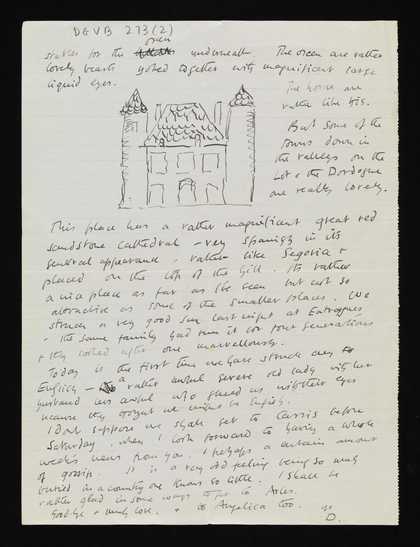 DGVB 273(2)
oxen
stables for the underneath. The oxen are rather
lovely beasts yoked together with magnificent large
liquid eyes.
The houses are
rather like this.
But some of the
towns down in
the valleys on the
Lot & the Dordogne
are really lovely.
This place has a rather magnificent great red
sandstone cathedral - very Spanish in its
general appearance, rather like Segovia &
placed on the top of the hill. Its rather
a nice place as far as I've seen but not so
attractive as some of the smaller places. We
struck a very good inn last night at Entraygues
- the same family had run it for four generations
& they looked after one marvellously.
Today is the first time we have struck any
English - a rather awful severe old lady with her
husband less awful who glued us with their eyes
because they thought we might be English.
I dont suppose we shall get to Cassis before
Saturday, when I look forward to having a whole
weeks news from you. & perhaps a certain amount
of gossip. It is a very odd feeling being so much
buried in a country one knows so little. I shall be
rather glad in some ways to get to Arles.
Goodbye & much love. & to Angelica too. yr
D.